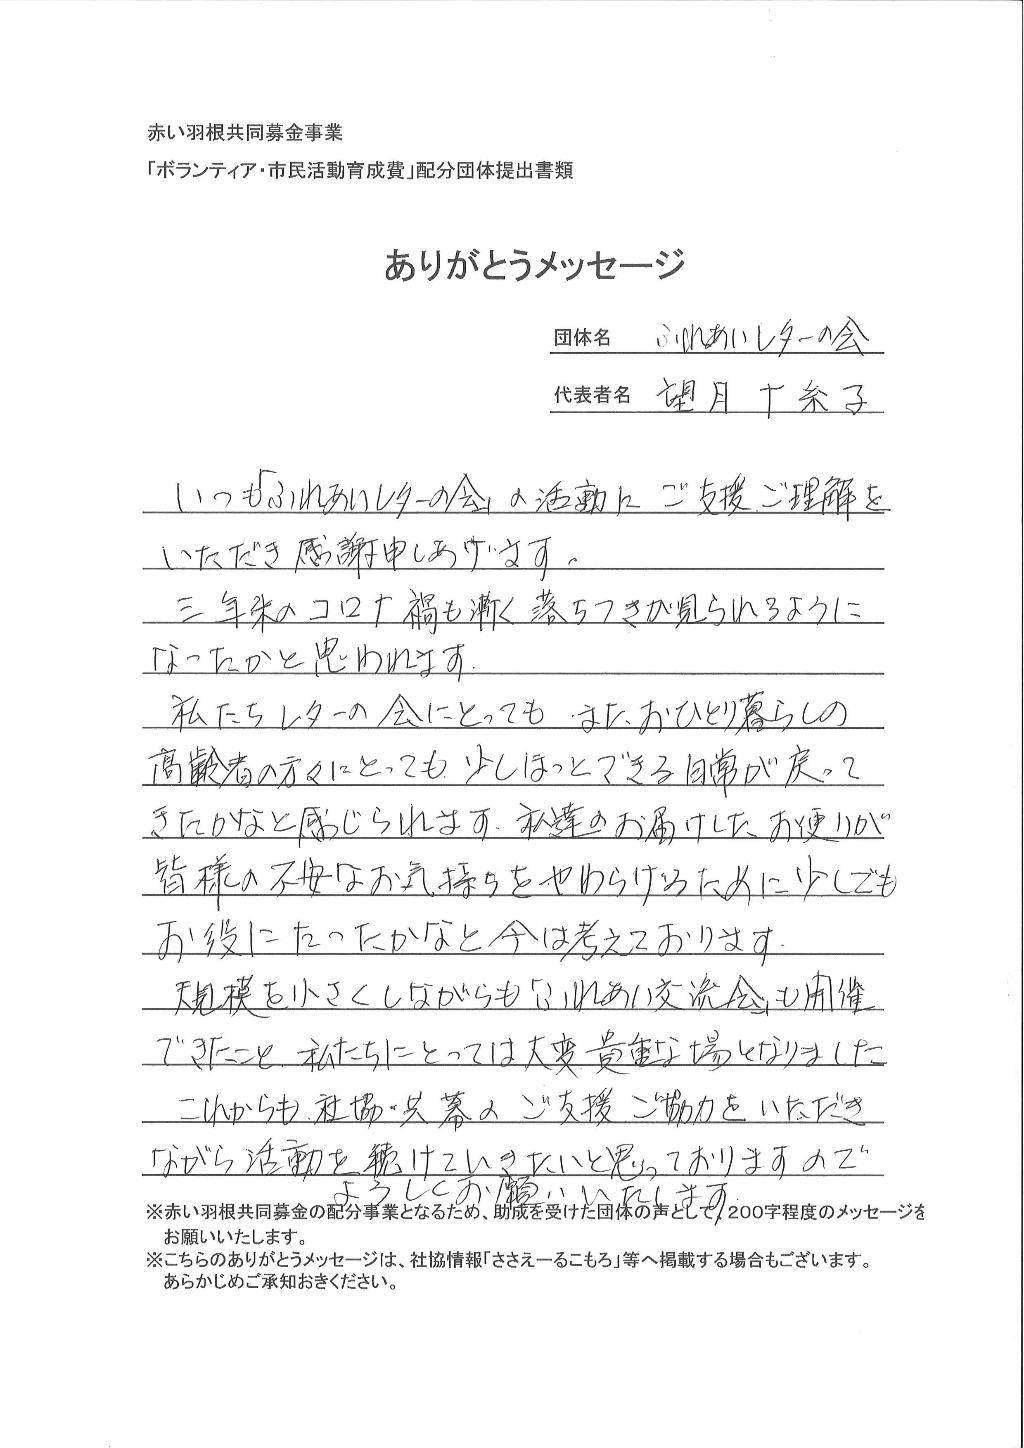 赤い羽根共同募金事業
「ボランティア・市民活動育成費」配分団体提出書類
ありがとうメッセージ
団体名 ふれあいレターの会
代表者名 望月千糸子
いつも「ふれあいレターの会」の活動に ご支援、ご理解を
いただき感謝申しあげます。
三年来のコロナ禍も漸く落ちつきが見られるように
なったかと思われます。
私たちレターの会にとっても、また、おひとり暮らしの
高齢者の方々にとっても、少しほっとできる日常が戻って
きたかなと感じられます。私達のお届けした、お便りが
皆様の不安なお気持ちをやわらげるために少しでも
お役にたったかなと今は考えております。
規模を小さくしながらも「ふれあい交流会」も開催
できたこと、私たちにとっては大変貴重な場となりました
これからも、社協・共募の ご支援 ご協力を いただき
ながら活動を続けていきたいと思っておりますので
よろしくお願いいたします。
※赤い羽根共同募金の配分事業となるため、助成を受けた団体の声として、200字程度のメッセージを
お願いいたします。
※こちらのありがとうメッセージは、社協情報「ささえーるこもろ」等へ掲載する場合もございます。
あらかじめご承知おきください。